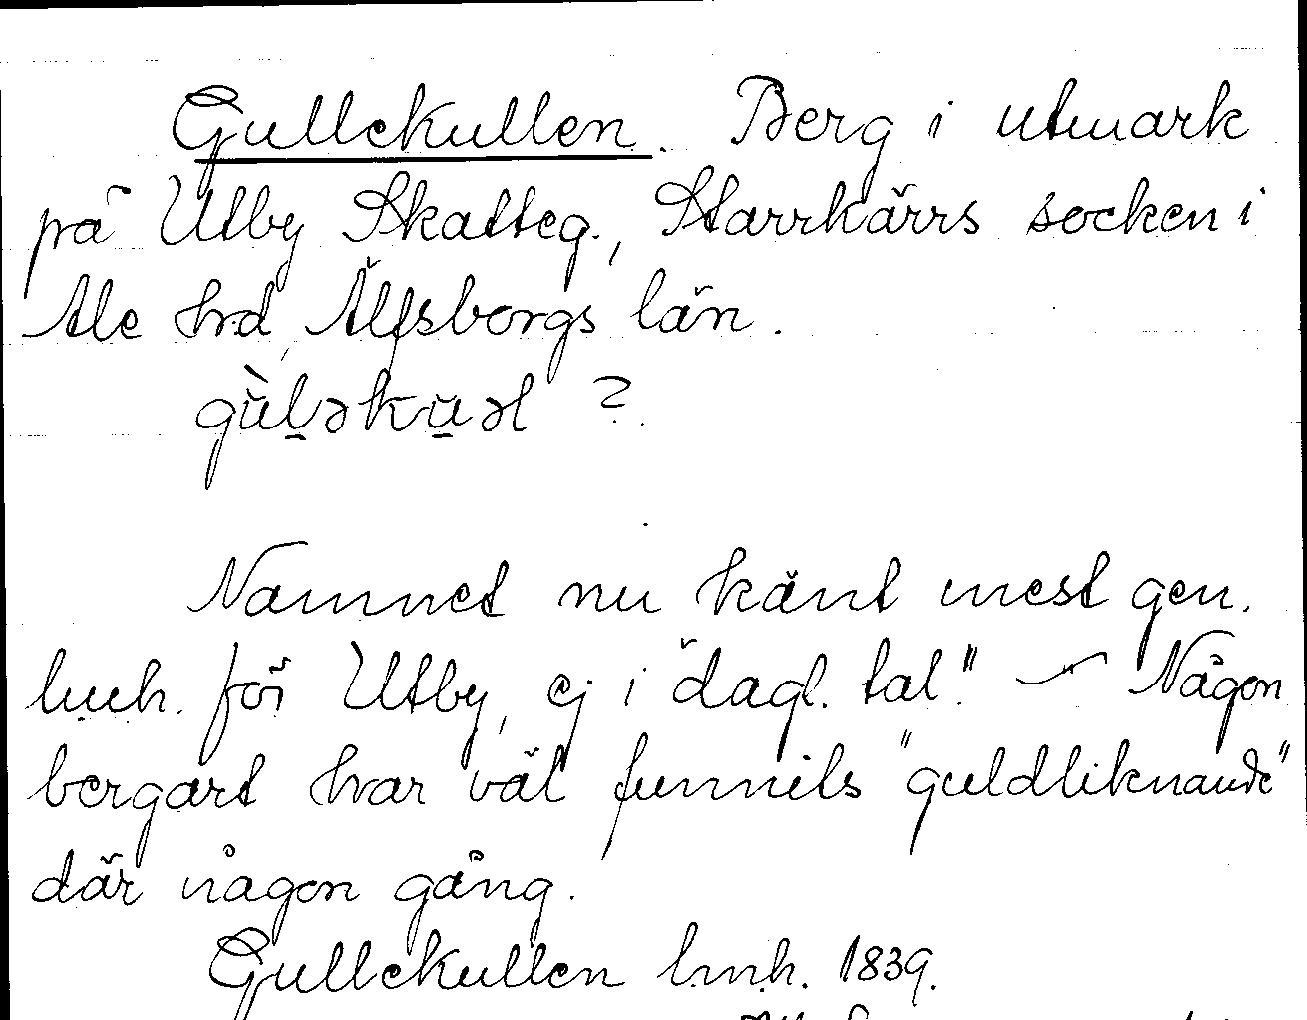 Gullekullen. Berg i utmark
på Utby Skatteg., Starrkärrs socken i
Ale hrd, Älfsborgs län.
gùləkuəl ?
Namnet nu känt mest gen.
lmh. för Utby, ej i "dagl. tal." — Någon
bergart har väl funnits "guldliknande"
där någon gång.
Gullekullen lmh. 1839.